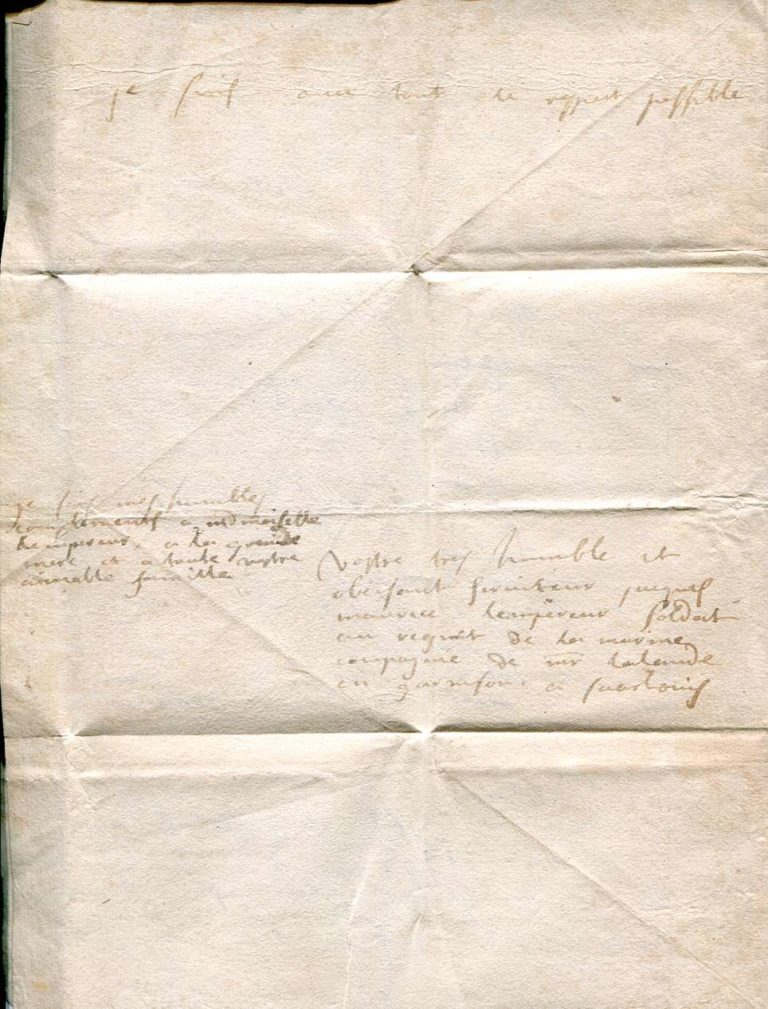 je suis avec tout le respect possible
je fais mes humbles
complements a mdmoiselle
Lempereur, a la grande
mere et a toute vostre
aimable famille
Vostre tres humble et
obeisant serviteur jacques
maurice Lempereur soldat
au regnt de la marine
compagnie de mr lalande
en garnison a saarlouis